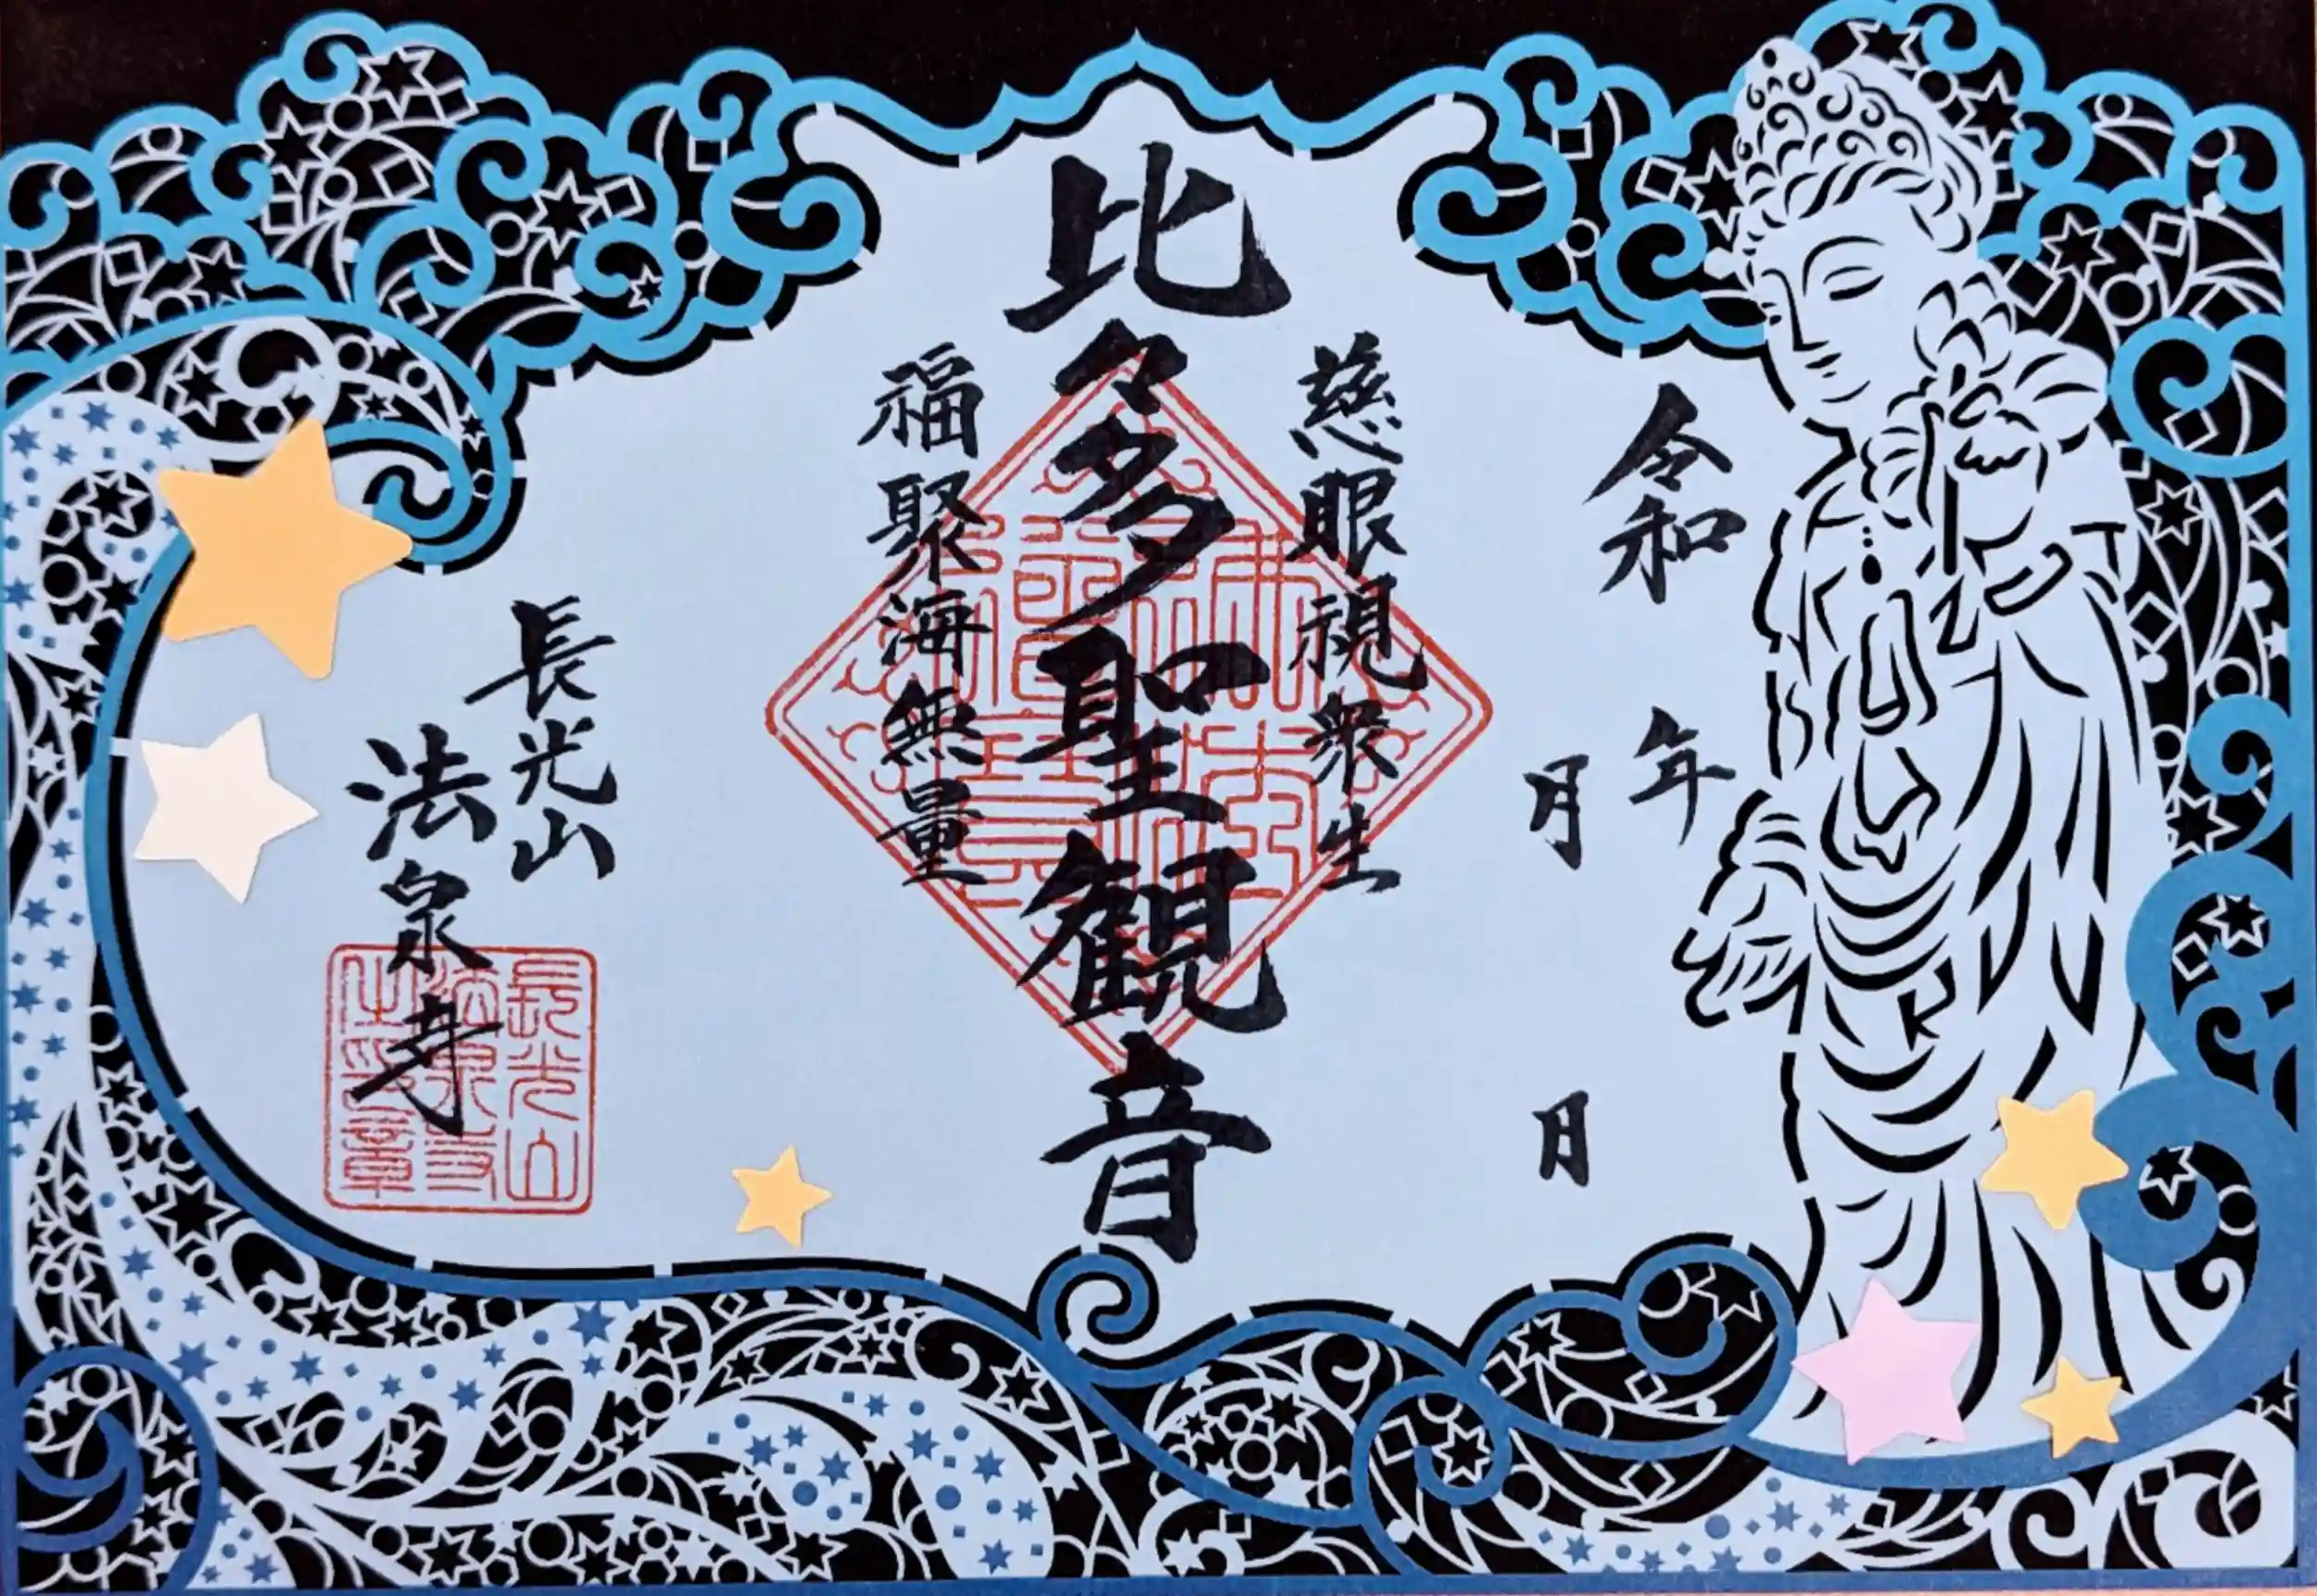 令和 年
月 日
慈眼視衆生
比々多聖観音
福聚海無量
佛法
僧寶
長光山
法泉寺
長光山
法泉寺
之印章